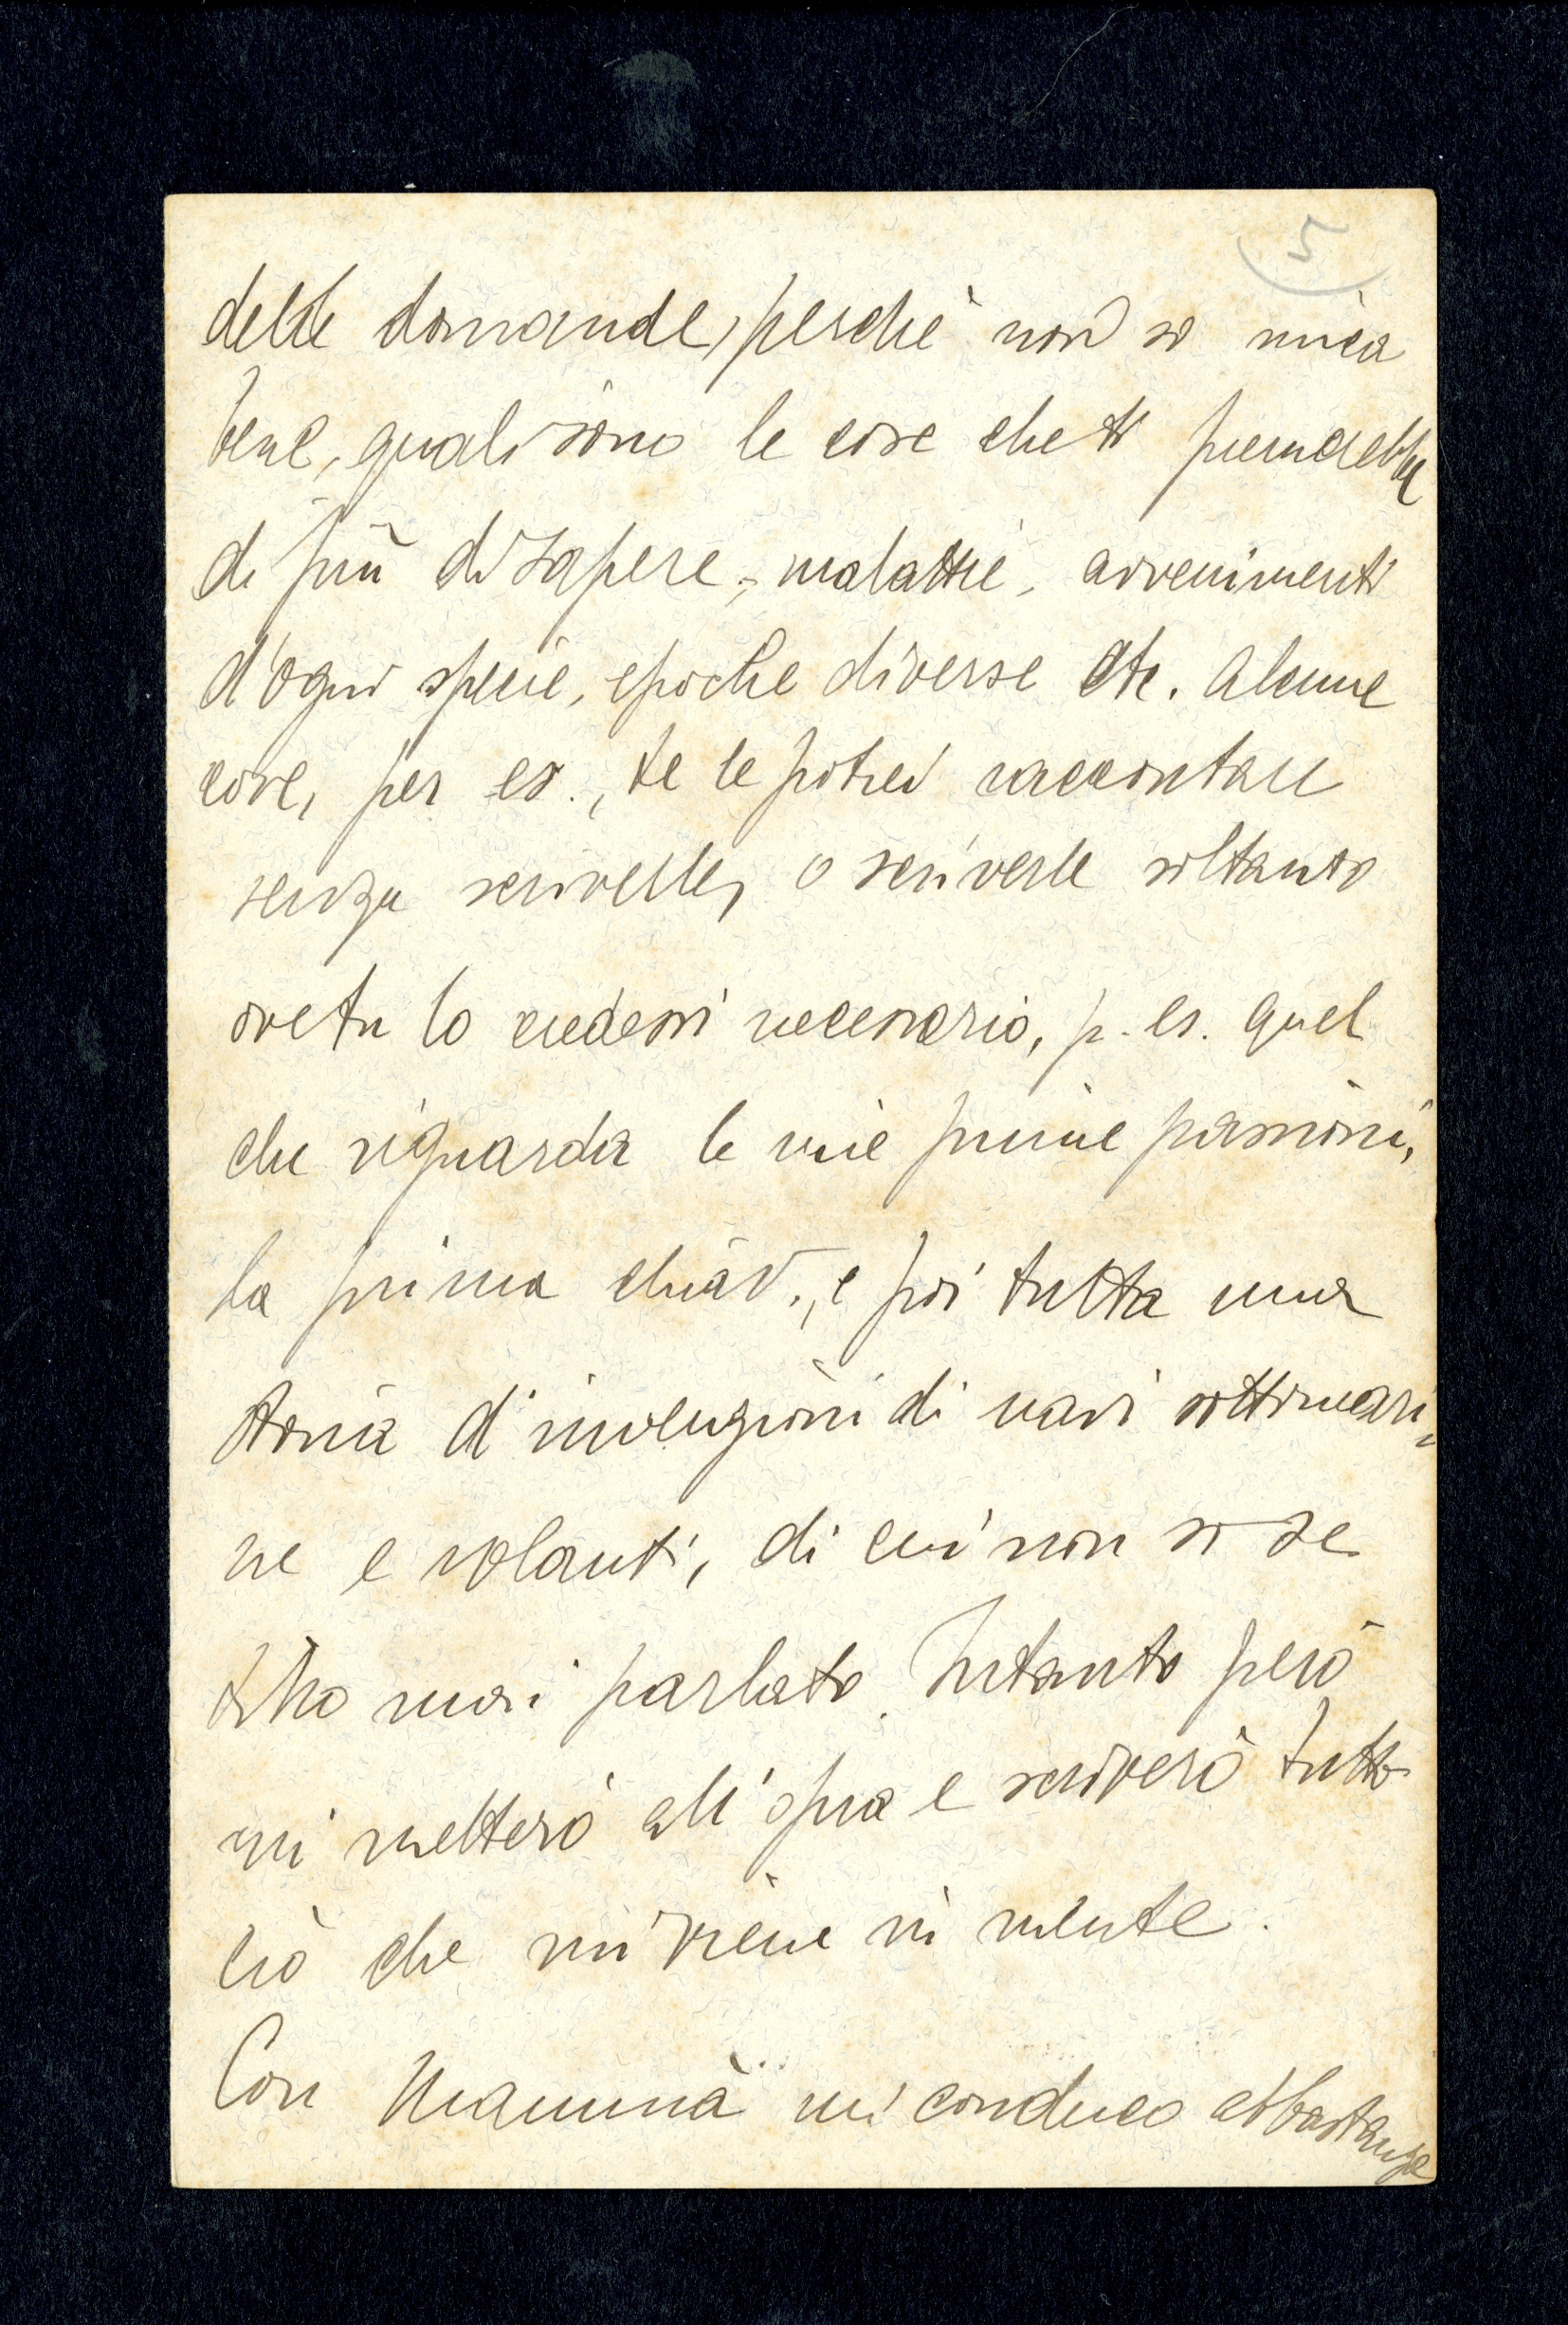 5
delle domande, perchè non so mica
bene, quali sono le cose che ti premerebbe
di più di sapere, malattie, avvenimenti
d'ogni specie, epoche diverse etc. Alcune
cose, per es., te le potrei raccontare
senza scriverle, o scriverle soltanto
ove tu lo credessi necessario, p. es. quel
che riguarda le mie prime passioni,
la prima e poi tutta una
storia d'invenzioni di navi sottomari-
ne e volanti, di cui non so se
t'ho mai parlato. Intanto però
mi metterò all'opra e scriverò tutto
ciò che mi viene in mente.
Con Mammà mi conduco abbastanza